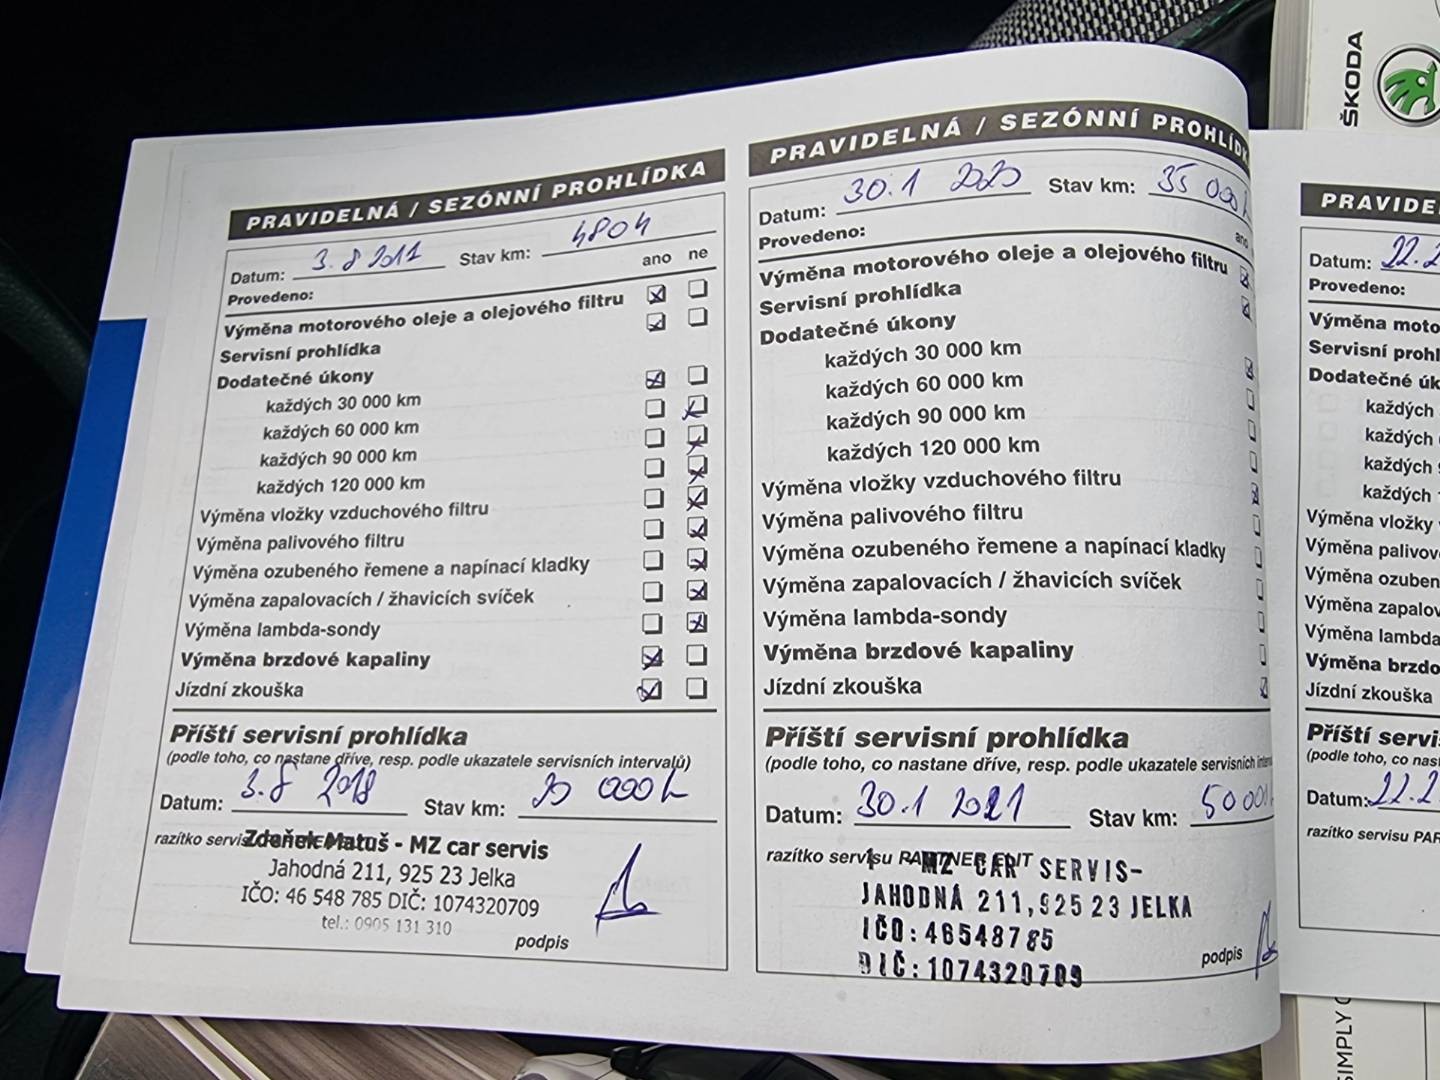 ŠKODA
PRAVIDELNÁ / SEZÓNNÍ PROHLÍDKA
Datum: 3. 8 Stav km: 4804
Provedeno: ano ne
Výměna motorového oleje a olejového filtru
Servisní prohlídka
Dodatečné úkony
každých 30 000 km
každých 60 000 km
každých 90 000 km
každých 120 000 km
Výměna vložky vzduchového filtru
Výměna palivového filtru
Výměna ozubeného řemene a napínací kladky
Výměna zapalovacích / žhavicích svíček
Výměna lambda-sondy
Výměna brzdové kapaliny
Jízdní zkouška
Příští servisní prohlídka
(podle toho, co nastane dříve, resp. podle ukazatele servisních intervalů)
Datum: 3.8 2018 Stav km: 000
razítko servisu
Zdeněk Matuš - MZ car servis
Jahodná 211, 925 23 Jelka
IČO: 46 548 785 DIČ: 1074320709
tel.: 0905 131 310
podpis
PRAVIDELNÁ / SEZÓNNÍ PROHLÍD
Datum: 30.1 2020 Stav km: 35 000
Provedeno: ano
Výměna motorového oleje a olejového filtru
Servisní prohlídka
Dodatečné úkony
každých 30 000 km
každých 60 000 km
každých 90 000 km
každých 120 000 km
Výměna vložky vzduchového filtru
Výměna palivového filtru
Výměna ozubeného řemene a napínací kladky
Výměna zapalovacích / žhavicích svíček
Výměna lambda-sondy
Výměna brzdové kapaliny
Jízdní zkouška
Příští servisní prohlídka
(podle toho, co nastane dříve, resp. podle ukazatele servisních inter
Datum: 30.1 2021 Stav km: 50 00
razítko servisu PARTNER EDIT
MZ CAR SERVIS-
JAHODNÁ 211,925 23 JELKA
IČO:46548785
DIČ:1074320709
podpis
PRAVIDE
Datum: 22.2
Provedeno:
Výměna moto
Servisní prohl
Dodatečné úk
každých
každých
každých
každých
Výměna vložky
Výměna palivov
Výměna ozuben
Výměna zapalov
Výměna lambda
Výměna brzdo
Jízdní zkouška
Příští servi
(podle toho, co nast
Datum: 22.2
razítko servisu PAR
SIMPLY C